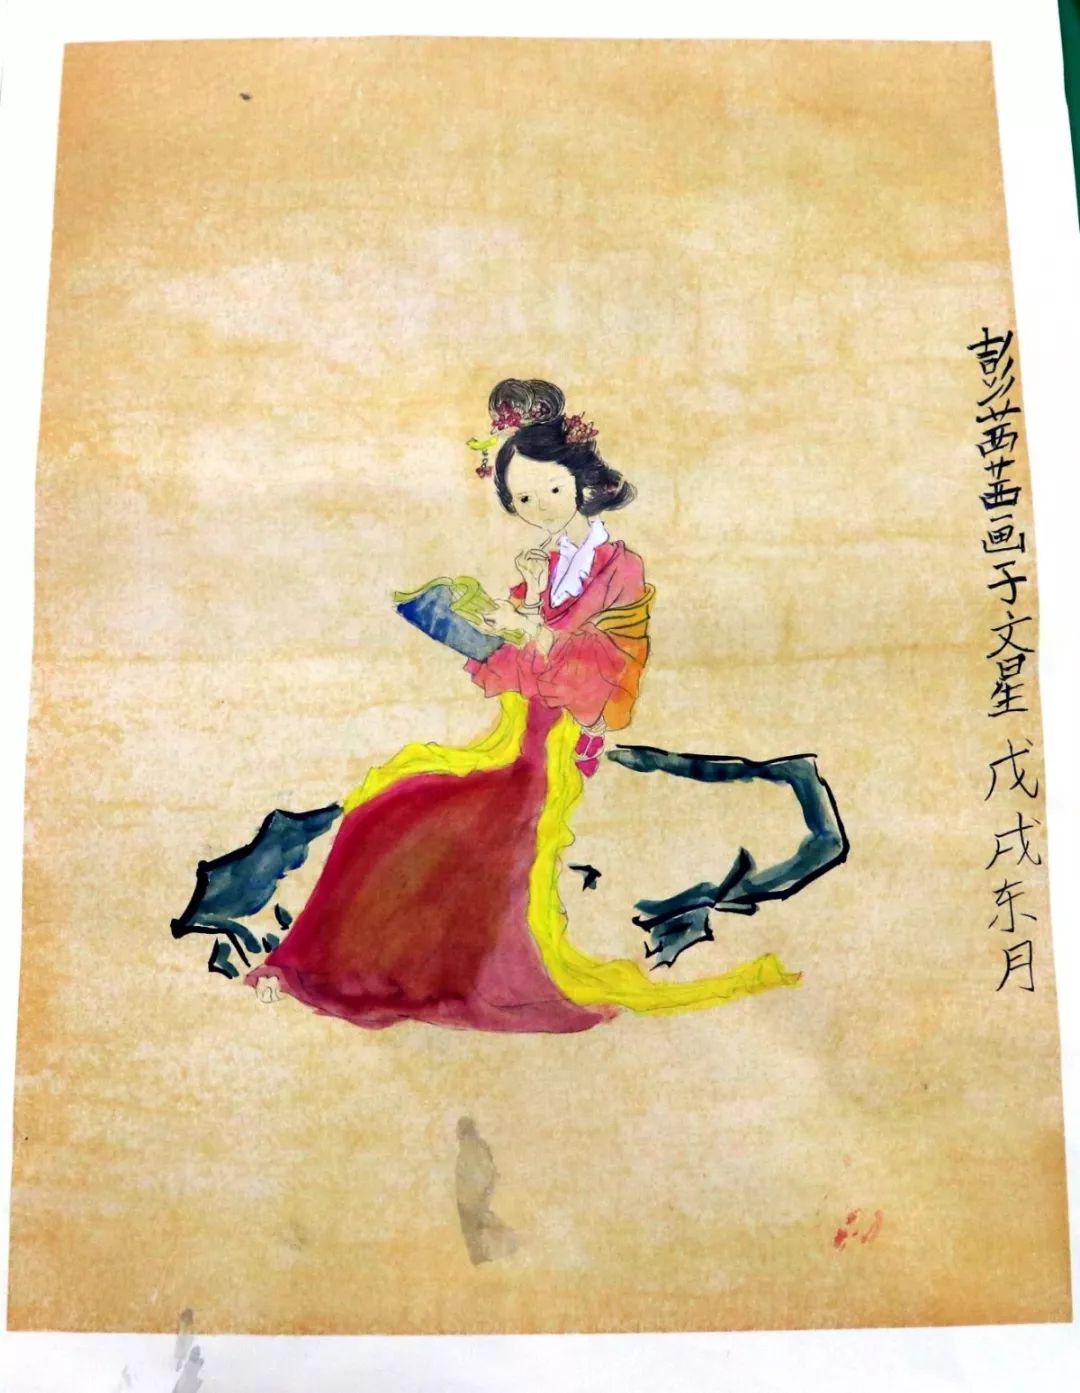 彭茜茜画子文星 戊戌东月